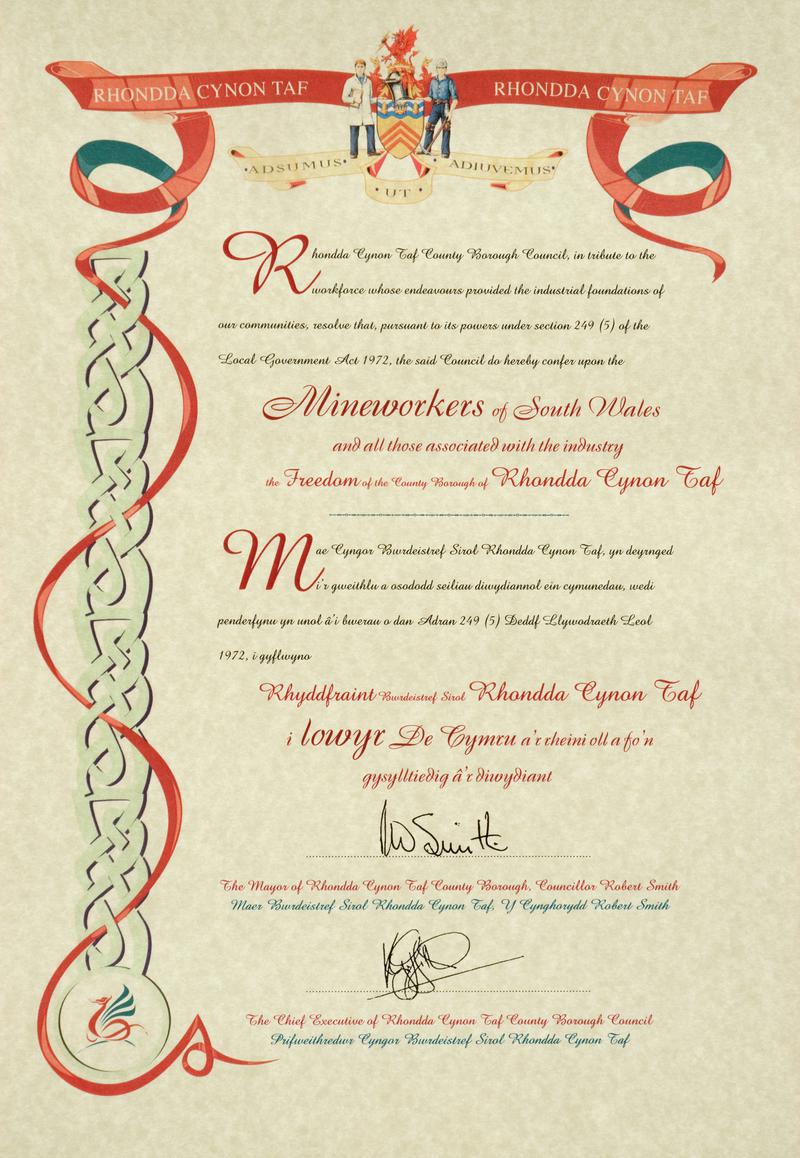 RHONDDA CYNON TAF
RHONDDA CYNON TAF
·ADSUMUS·
·UT·
ADIUVEMUS·
Rhondda Cynon Taf County Borough Council, in tribute to the
workforce whose endeavours provided the industrial foundations of
our communities, resolve that, pursuant to its powers under section 249 (5) of the
Local Government Act 1972, the said Council do hereby confer upon the
Mineworkers of South Wales
and all those associated with the industry
the Freedom of the County Borough of Rhondda Cynon Taf
Mae Cyngor Bwrdeistref Sirol Rhondda Cynon Taf, yn deyrnged
i'r gweithlu a osododd seiliau diwydiannol ein cymunedau, wedi
penderfynu yn unol â'i bwerau o dan Adran 249 (5) Deddf Llywodraeth Leol
1972, i gyflwyno
Rhyddfraint Bwrdeistref Sirol Rhondda Cynon Taf
i lowyr De Cymru a'r rheini oll a fo'n
gysylltiedig â'r diwydiant
The Mayor of Rhondda Cynon Taf County Borough, Councillor Robert Smith
Maer Bwrdeistref Sirol Rhondda Cynon Taf, Y Cynghorydd Robert Smith
The Chief Executive of Rhondda Cynon Taf County Borough Council
Prifweithredwr Cyngor Bwrdeistref Sirol Rhondda Cynon Taf